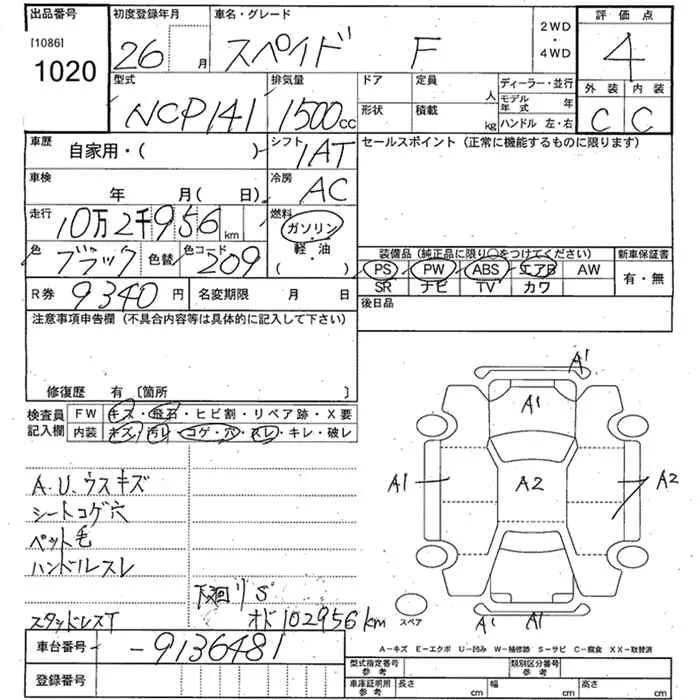 出品番号 初度登録年月 車名・グレード 2WD・4WD 評価点
[1086]
1020
26 月 スペイド F 4
型式 排気量 ドア 定員 人 ディーラー・並行 外装 内装
NCP141 1500cc 形状 積載 kg モデル年式 年 C C
ハンドル 左・右
車歴 自家用・( ) シフト IAT セールスポイント (正常に機能するものに限ります)
車検 年 月(日) 冷房 AC
走行 10万2千956km 燃料 ガソリン・軽油 ( )
色 ブラック 色替 色コード 209
装備品 (純正品に限り○をつけてください) 新車保証書
PS PW ABS エアB AW 有・無
SR ナビ TV カワ
R券 9340円 名変期限 月 日 後日品
注意事項申告欄 (不具合内容等は具体的に記入して下さい)
修復歴 有 〔箇所 〕
検査員記入欄 FW キズ・飛石・ヒビ割・リペア跡・X要
内装 キズ・汚レ・コゲ・穴・スレ・キレ・破レ
A.U.ウスキズ
シートコゲ穴
ペット毛
ハンドルスレ
下廻りS
スタッドレスT オド102956km
A1
A1
A1 A2 A2
A1 A1
スペア
A−キズ E−エクボ U−凹み W−補修跡 S−サビ C−腐食 XX−取替済
車台番号 -9136481
登録番号
型式指定番号 参考 類別区分番号 参考
車庫証明用 参考 長さ cm 幅 cm 高さ cm